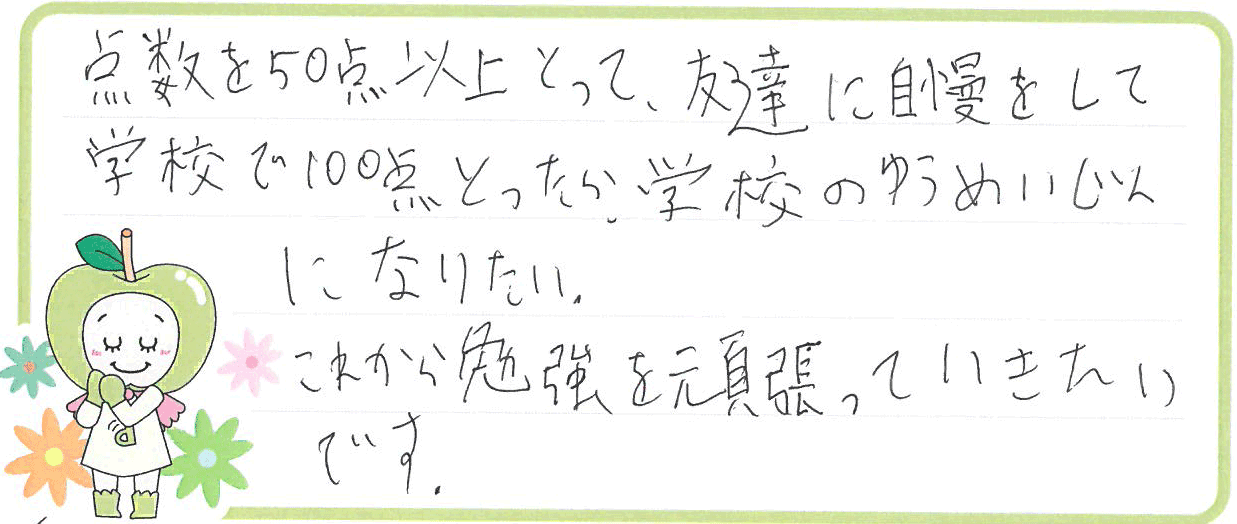 点数を50点以上とって、友達に自慢をして
学校で100点とったら、学校のゆうめいじん
になりたい。
これから勉強を頑張っていきたい
です。